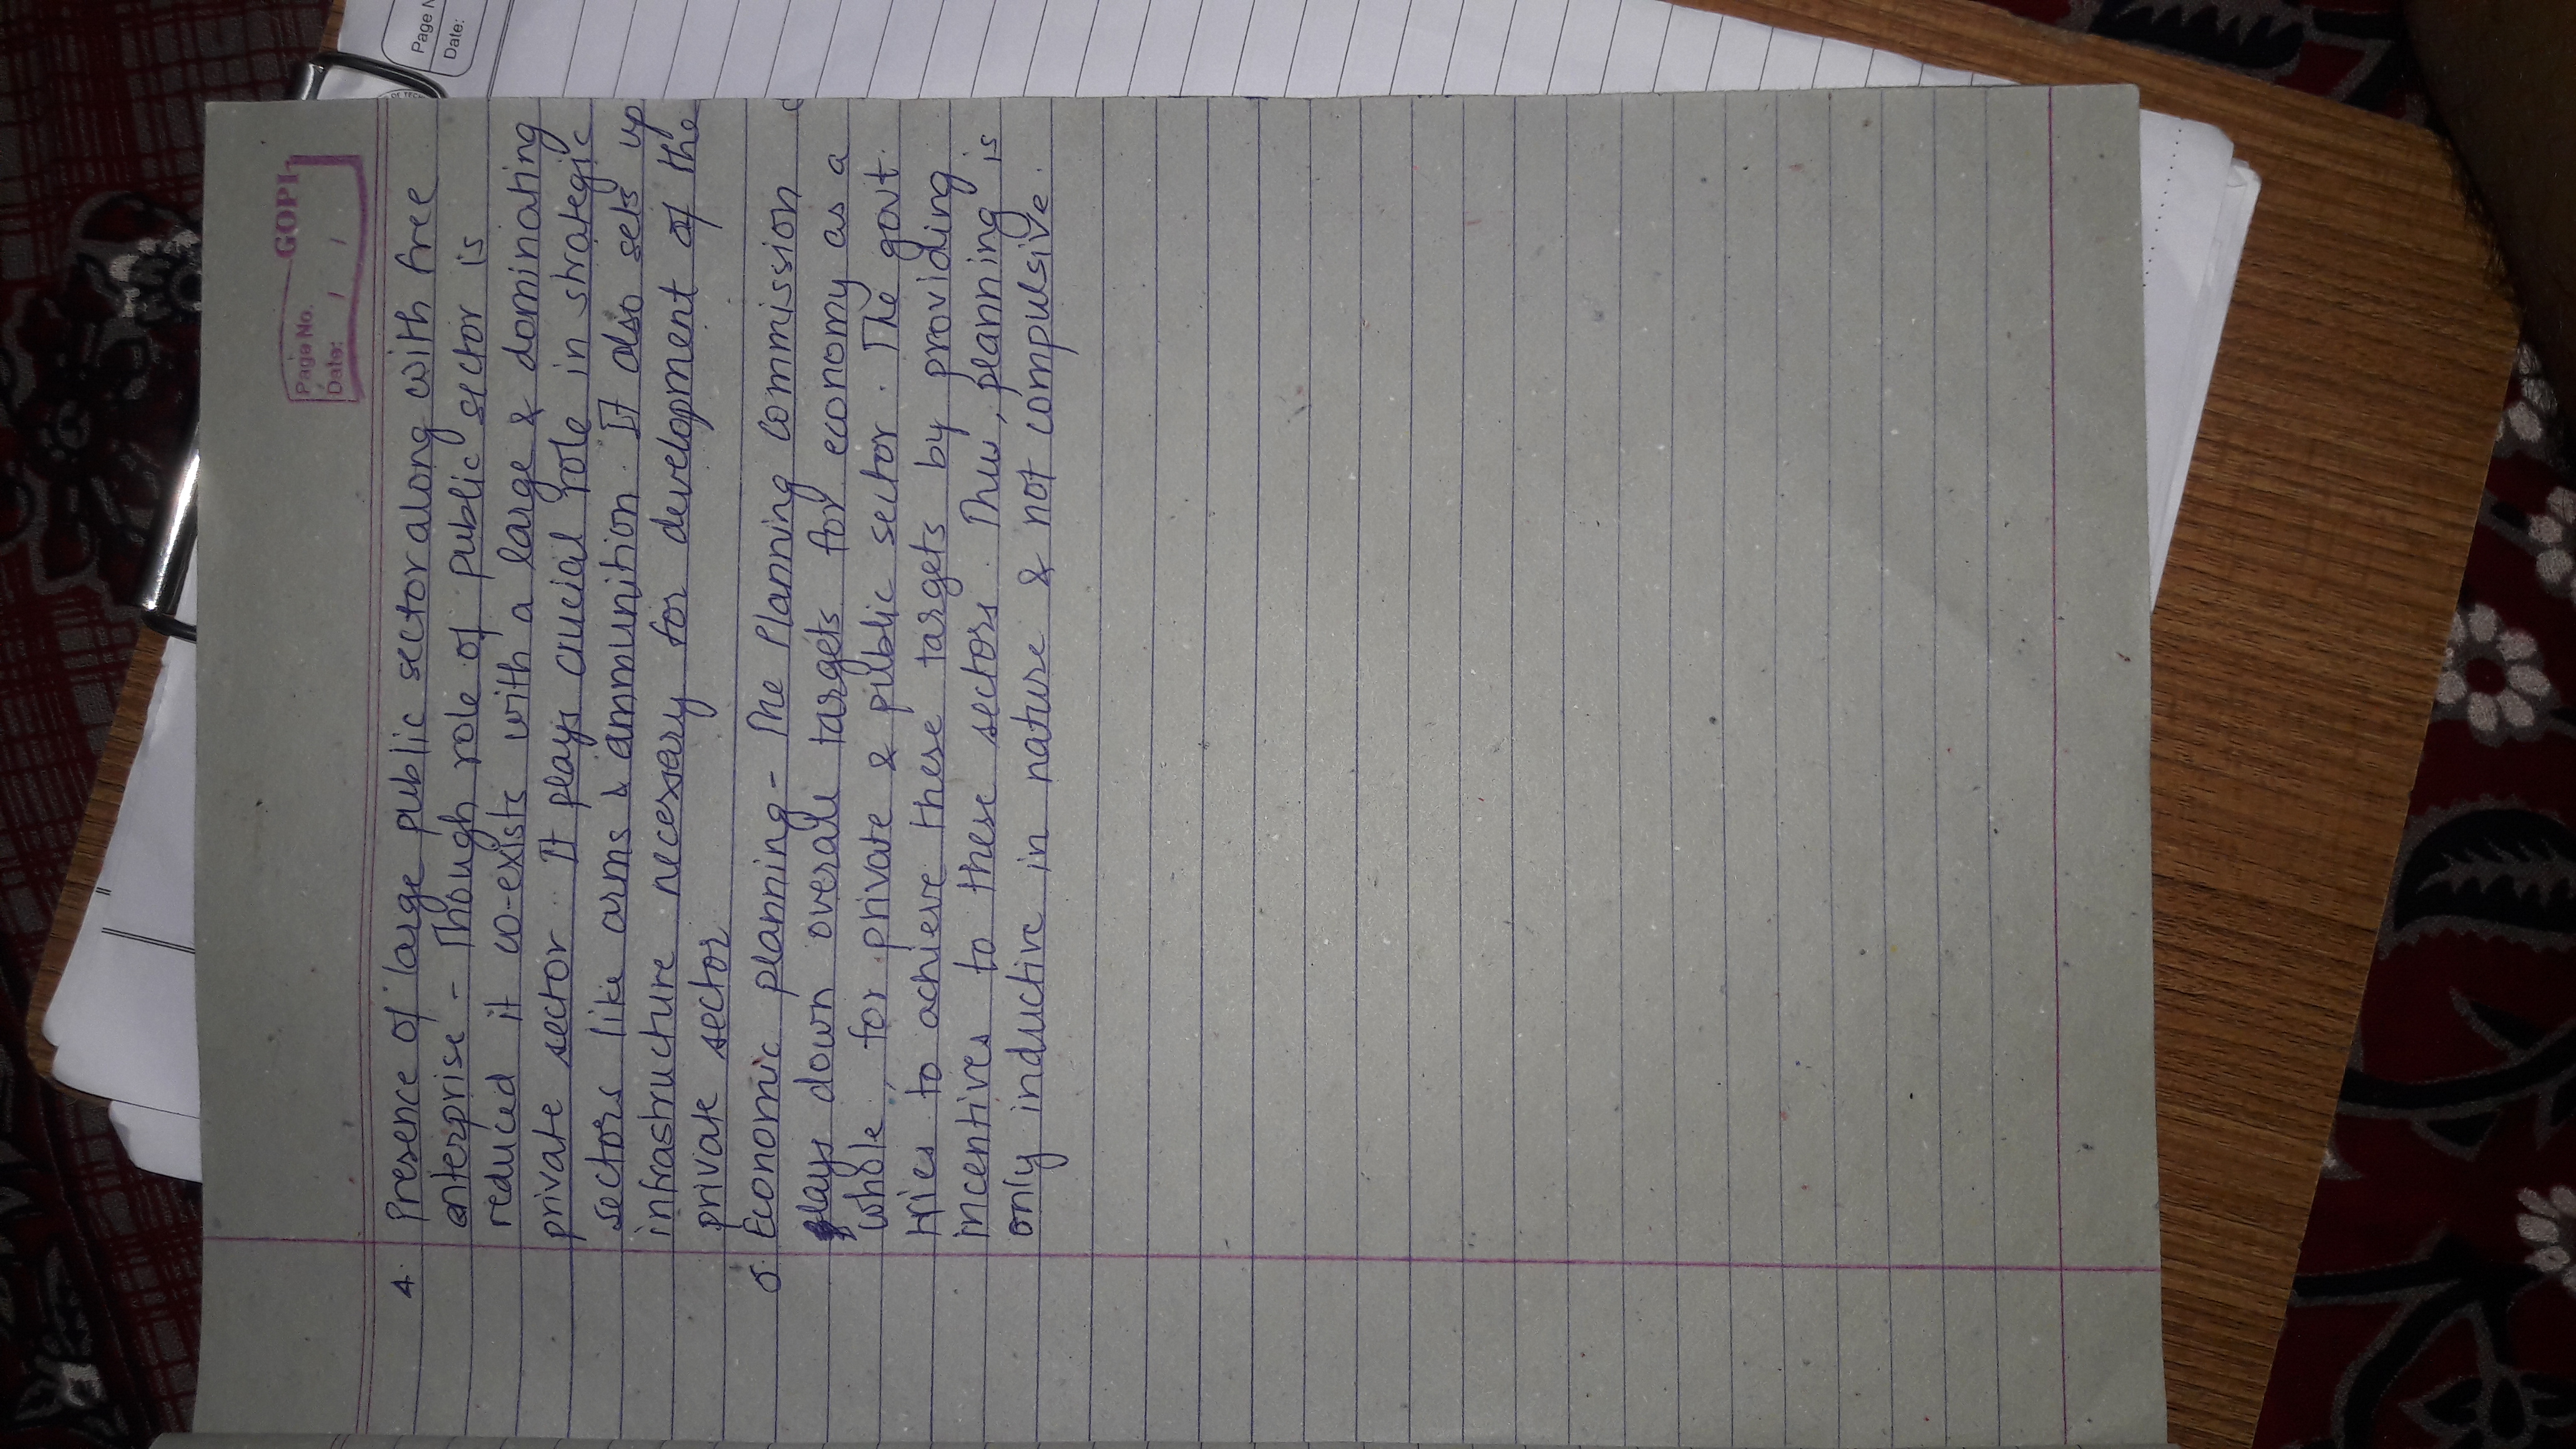 GOPI
Page No.
Date: / /
4. Presence of large public sector along with free
enterprise - Though role of public sector is
reduced it co-exists with a large & dominating
private sector. It plays crucial role in strategic
sectors like arms & ammunition. It also sets up
infrastructure necessary for development of the
private sector
5. Economic planning - The Planning Commission
lays down overall targets for economy as a
whole, for private & public sector. The govt.
tries to achieve these targets by providing
incentives to these sectors. Thus, planning is
only inductive in nature & not compulsive.
Page N
Date: